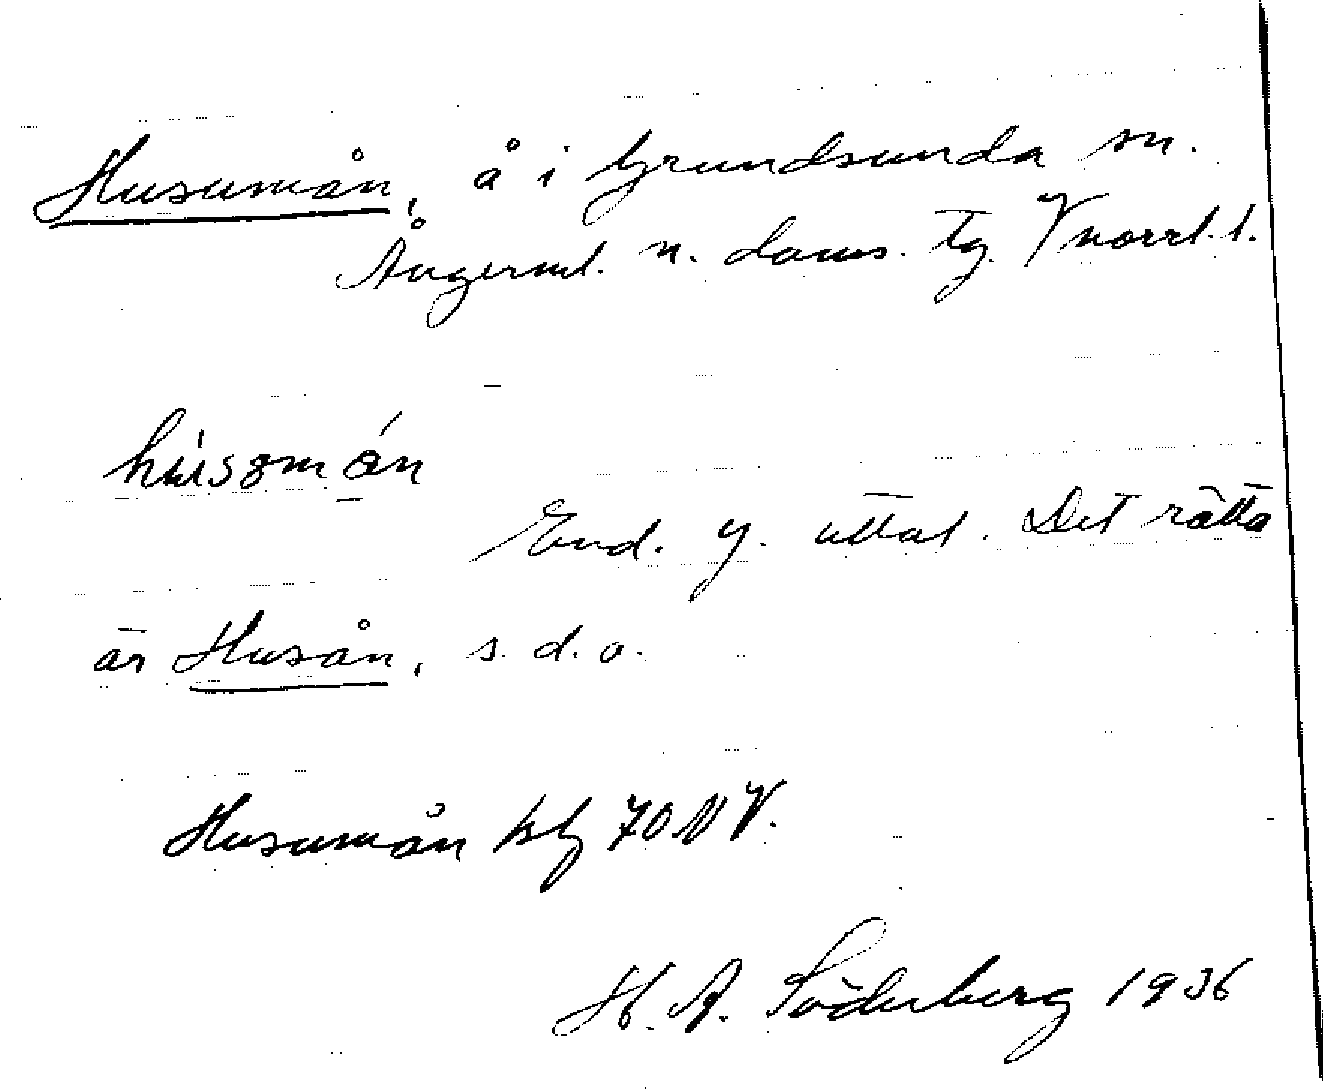 Husumån, å i Grundsunda sn.
Ångerml. n. doms. tg. Vnorrl. l.
End. y. uttal. Det rätta
är Husån, s. d. o.
Husumån kbl 70 NV.
H. A. Söderberg 1936